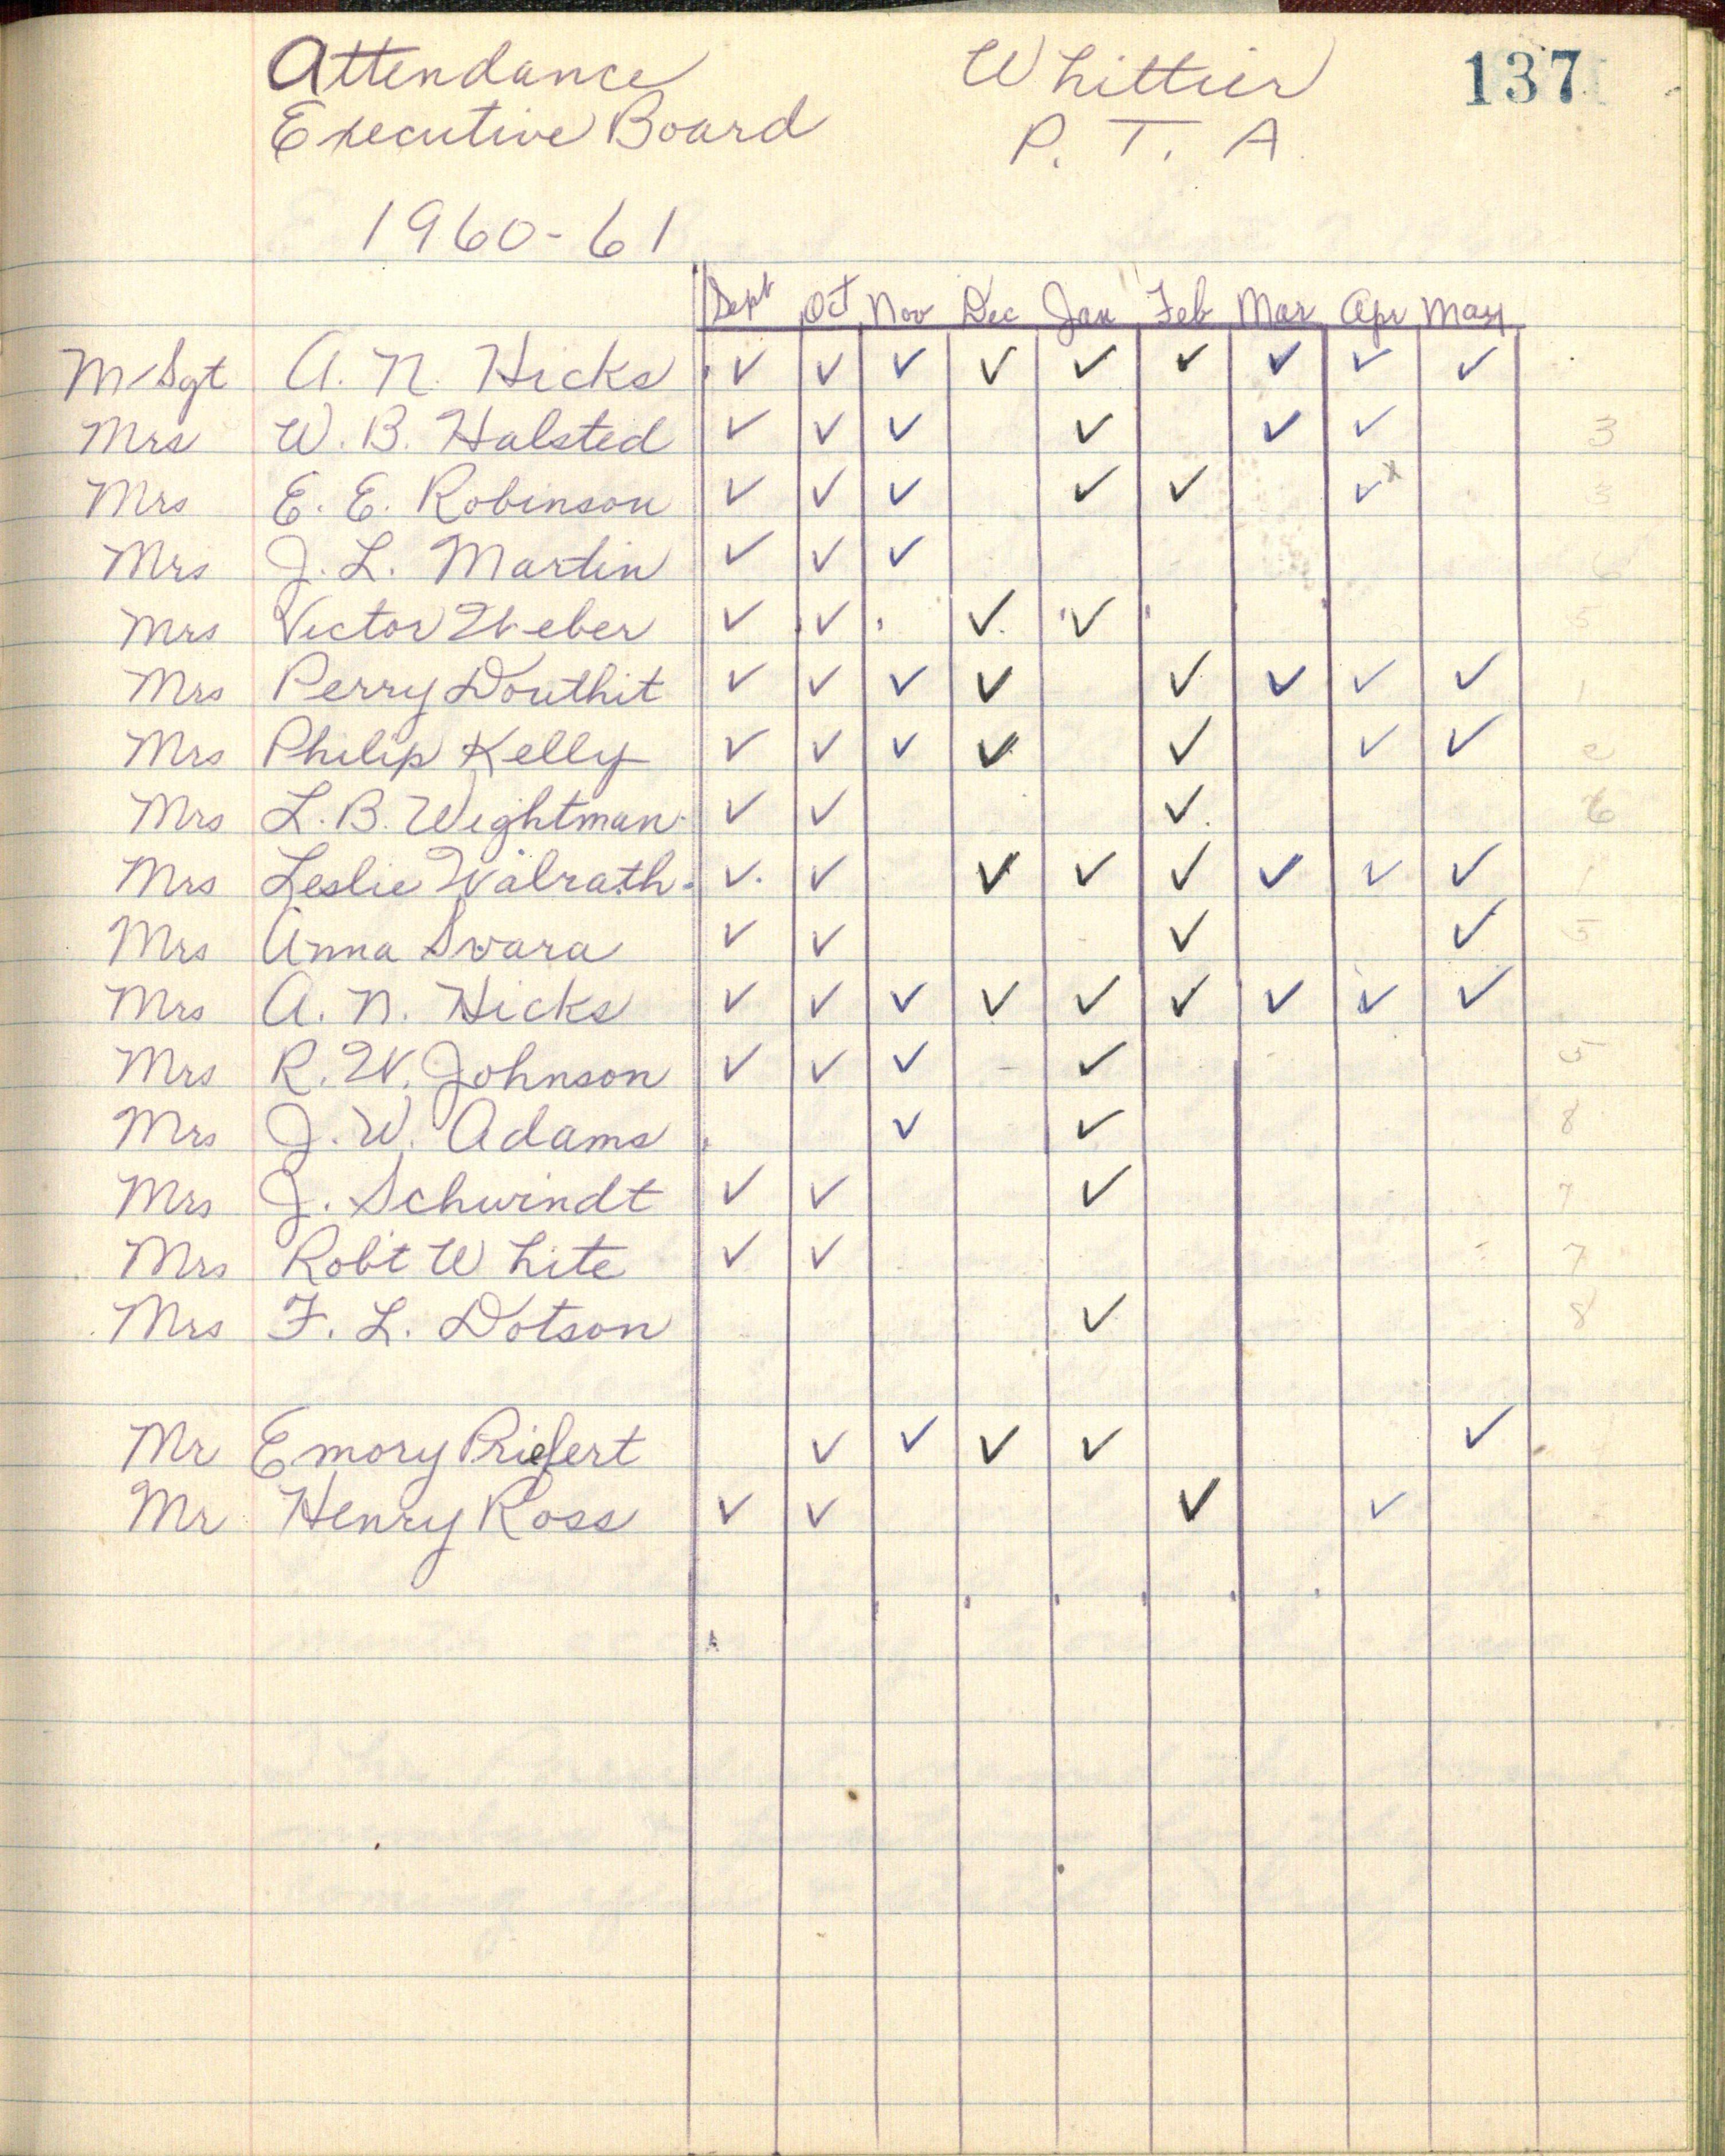 Attendance Whittier 137
Executive Board P. T. A.
1960-61
Sept Oct Nov Dec Jan Feb Mar Apr May
M/Sgt A. N. Hicks ✓ ✓ ✓ ✓ ✓ ✓ ✓ ✓ ✓
Mrs W. B. Halsted ✓ ✓ ✓ ✓ ✓ ✓ 3
Mrs E. E. Robinson ✓ ✓ ✓ ✓ ✓ ✓x 3
Mrs J. L. Martin ✓ ✓ ✓ 6
Mrs Victor Weber ✓ ✓ ✓ ✓ 5
Mrs Perry Douthit ✓ ✓ ✓ ✓ ✓ ✓ ✓ ✓ 1
Mrs Philip Kelly ✓ ✓ ✓ ✓ ✓ ✓ ✓ 2
Mrs L. B. Weightman ✓ ✓ ✓ 6
Mrs Leslie Walrath ✓ ✓ ✓ ✓ ✓ ✓ ✓ ✓ 1
Mrs Anna Svara ✓ ✓ ✓ ✓ 5
Mrs A. N. Hicks ✓ ✓ ✓ ✓ ✓ ✓ ✓ ✓ ✓
Mrs R. W. Johnson ✓ ✓ ✓ - ✓ 5
Mrs J. W. Adams ✓ ✓ 8
Mrs J. Schwindt ✓ ✓ ✓ 7
Mrs Robt White ✓ ✓ 7
Mrs F. L. Dotson ✓ 8
Mr Emory Priefert ✓ ✓ ✓ ✓ ✓
Mr Henry Ross ✓ ✓ ✓ ✓